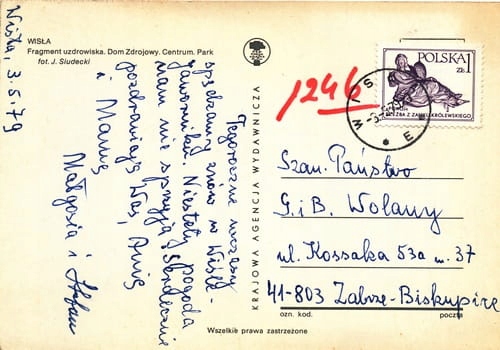 WISŁA
Fragment uzdrowiska. Dom Zdrojowy. Centrum. Park
fot. J. Siudecki
Wisła, 3.5.79
Tegoroczne wczasy
spędzamy znów w Wiśle-
Jaworniku. Niestety pogoda
nam nie sprzyja. Serdecznie
pozdrawiają Was, Anię
i Mamę
Małgosia i Stefan
KRAJOWA AGENCJA WYDAWNICZA
1246
POLSKA 1
ZŁ
RZEŹBA Z ZAMKU KRÓLEWSKIEGO
WISŁA
Szan. Państwo
G. i B. Wolany
ul. Kossaka 53a m. 37
41-803 Zabrze-Biskupice
ozn. kod.
poczta
Wszelkie prawa zastrzeżone